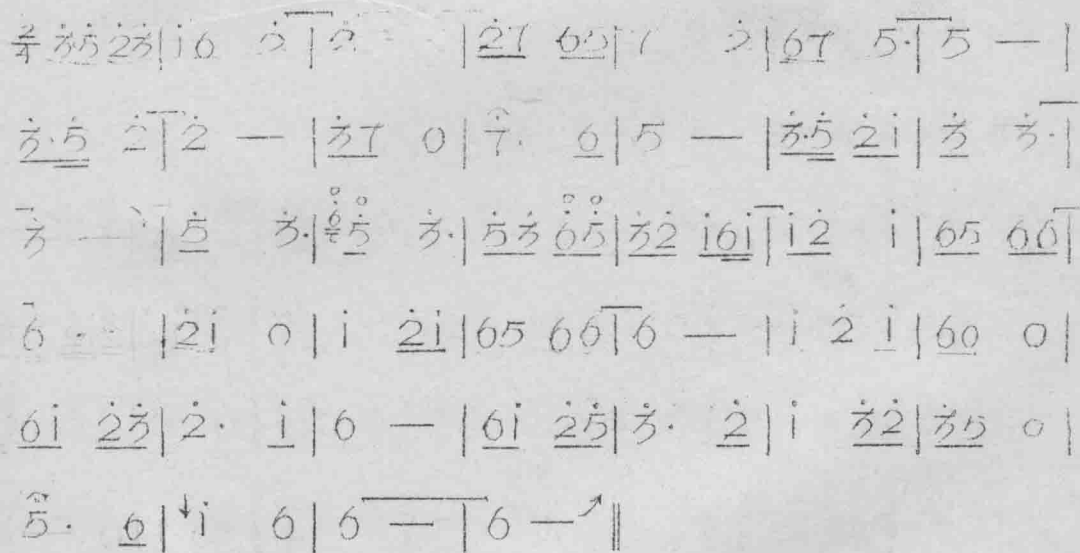 2/4 3̇5̇ 2̇3̇ | i̇ 6 2̇ | 2̇ | 2̇7 65 | 7 2̇ | 67 5· | 5 — |
3̇·5̇ 2̇ | 2̇ — | 3̇7 0 | 7· 6 | 5 — | 3̇·5̇ 2̇i | 3̇ 3̇· |
3̇ — | 5̇ 3̇· | 6̇ 5̇ 3̇· | 5̇3̇ 6̇5̇ | 3̇2̇ i6i | i2̇ i | 65 66 |
6 | 2̇i 0 | i 2̇i | 65 66 | 6 — | i 2̇ i | 60 0 |
6i 2̇3̇ | 2̇· i | 6 — | 6i 2̇5̇ | 3̇· 2̇ | i 3̇2̇ | 3̇5 0 |
5̇· 6 | ↓i 6 | 6 — | 6 — ↗ ‖